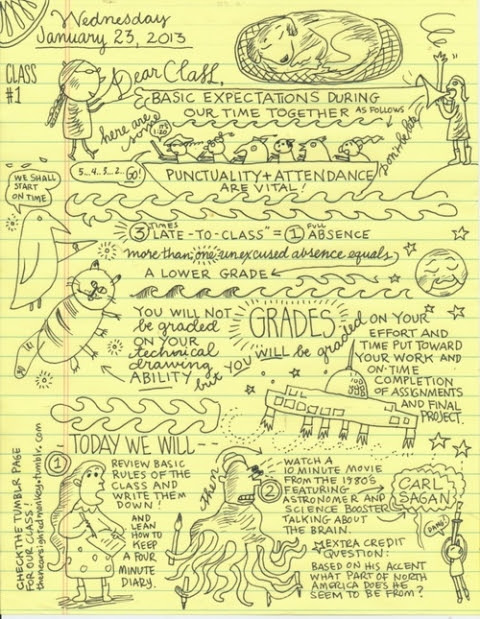 Wednesday
January 23, 2013
CLASS
#1
Dear Class,
here are some
BASIC EXPECTATIONS DURING
OUR TIME TOGETHER AS FOLLOWS
don't be late
WE SHALL
START
ON TIME
5...4..3..2.. Go!
PUNCTUALITY + ATTENDANCE
ARE VITAL!
3 TIMES "LATE-TO-CLASS" = 1 FULL ABSENCE
more than one unexcused absence equals
A LOWER GRADE
GRADES
YOU WILL NOT
be graded
ON YOUR
technical
drawing
ABILITY but
YOU WILL be graded ON YOUR
EFFORT AND
TIME PUT TOWARD
YOUR WORK AND
ON-TIME
COMPLETION
OF ASSIGNMENTS
AND FINAL
PROJECT.
TODAY WE WILL --
1
REVIEW BASIC
RULES OF THE
CLASS AND
WRITE THEM
DOWN!
AND
LEARN
HOW TO
KEEP
A FOUR
MINUTE
DIARY.
Then
2
WATCH A
10 MINUTE MOVIE
FROM THE 1980'S
FEATURING
ASTRONOMER AND
SCIENCE BOOSTER
TALKING ABOUT
THE BRAIN.
CARL
SAGAN
DANG!
EXTRA CREDIT
QUESTION:
BASED ON HIS ACCENT
WHAT PART OF NORTH
AMERICA DOES HE
SEEM TO BE FROM?
CHECK THE TUMBLR PAGE
FOR OUR CLASS
thenearsightedmonkey.tumblr.com